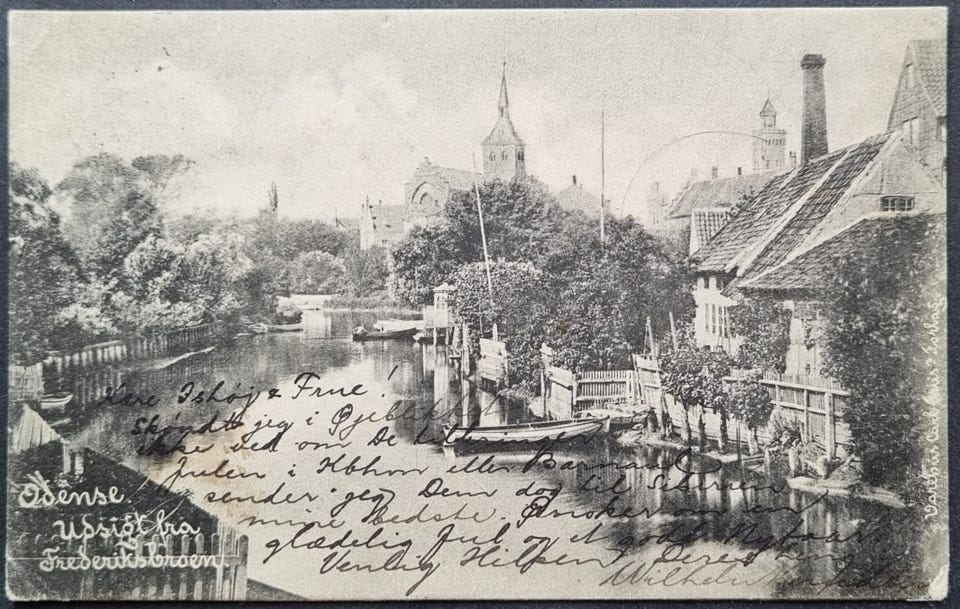 Kære Ishøj & Frue!
Skøndt jeg i Øjeblikket
ikke ved om De tilbringer
Julen i Kbhvn eller
sender jeg Dem dog til
mine bedste Ønsker om en
glædelig Jul og et godt Nytaar
Venlig Hilsen, Deres
Wilhelm
Odense.
Udsigt fra
Frederiksbroen.